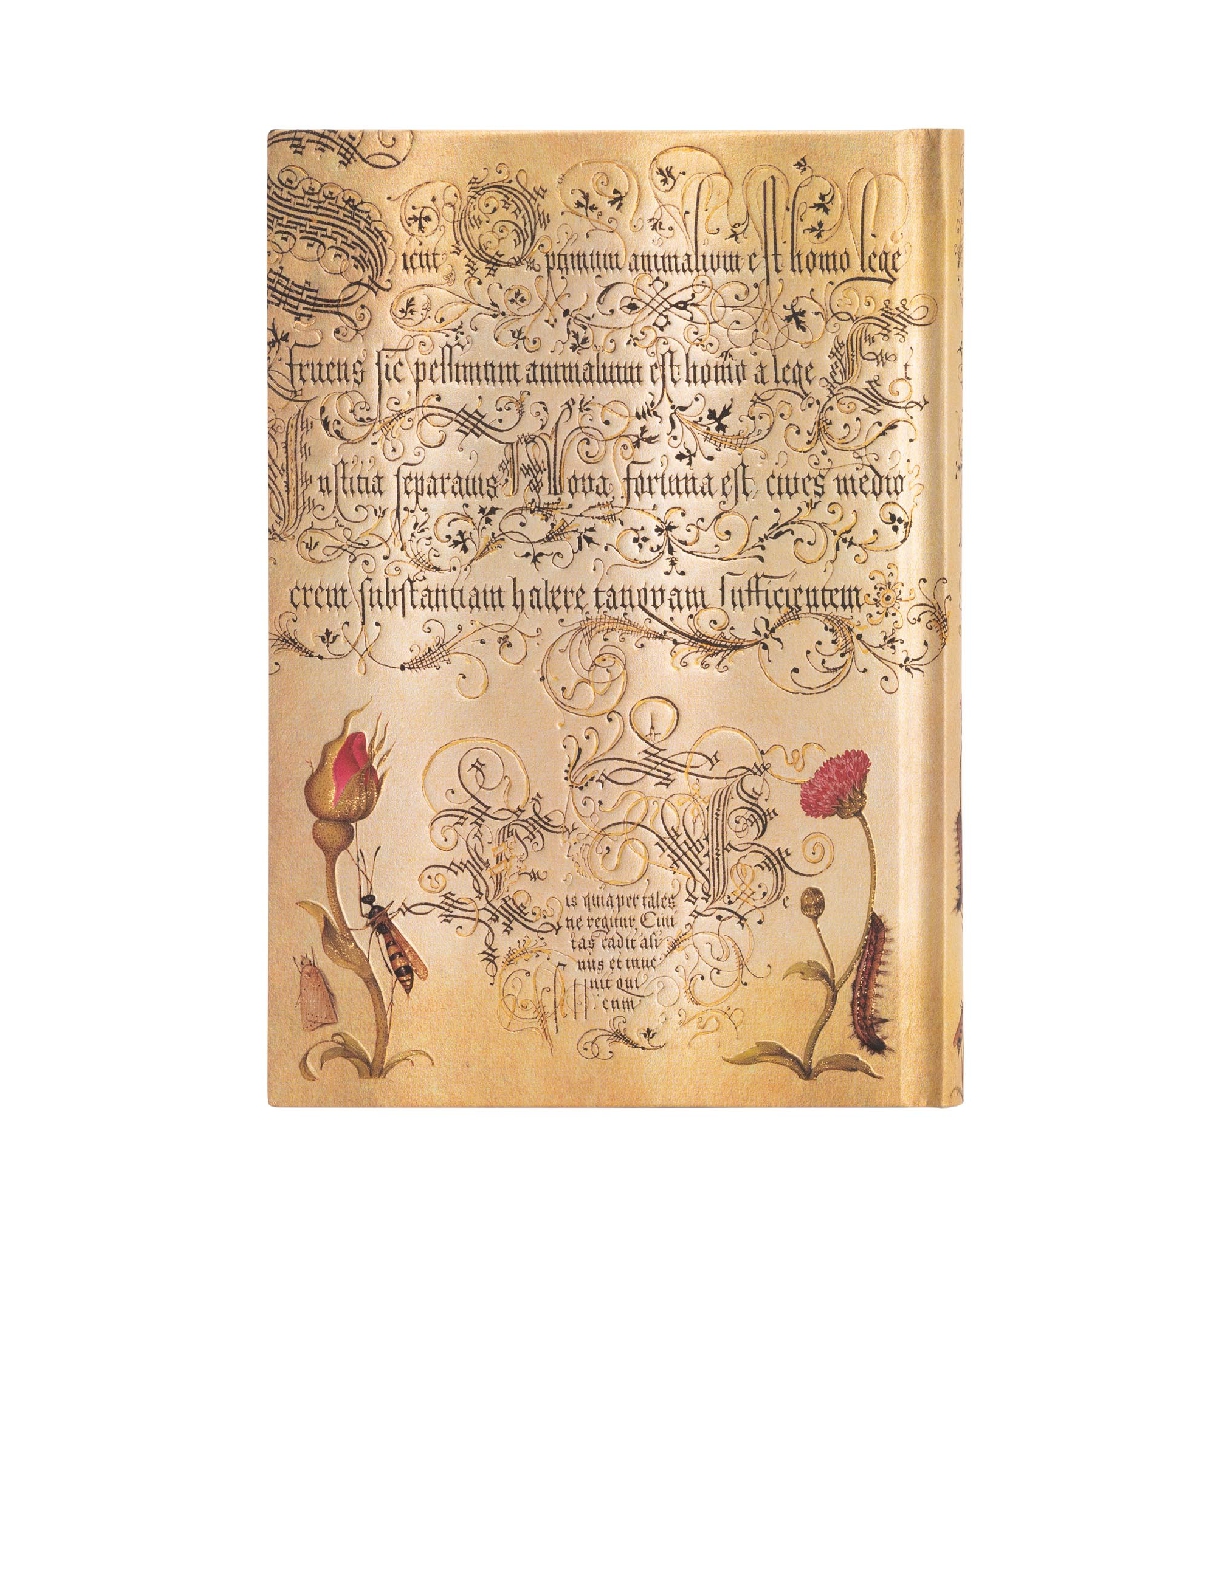 Sicut Optimum animalivm est homo lege
fruens sic pessimum animalium est homo a lege Et
Iustitia separatus Bona fortuna est, ciues medio
crem substantiam habere tanqvam sufficientem
is quia per tales Be
ne regitur. Ciui
tas cadit asi
nus et inue
nit qui
eum